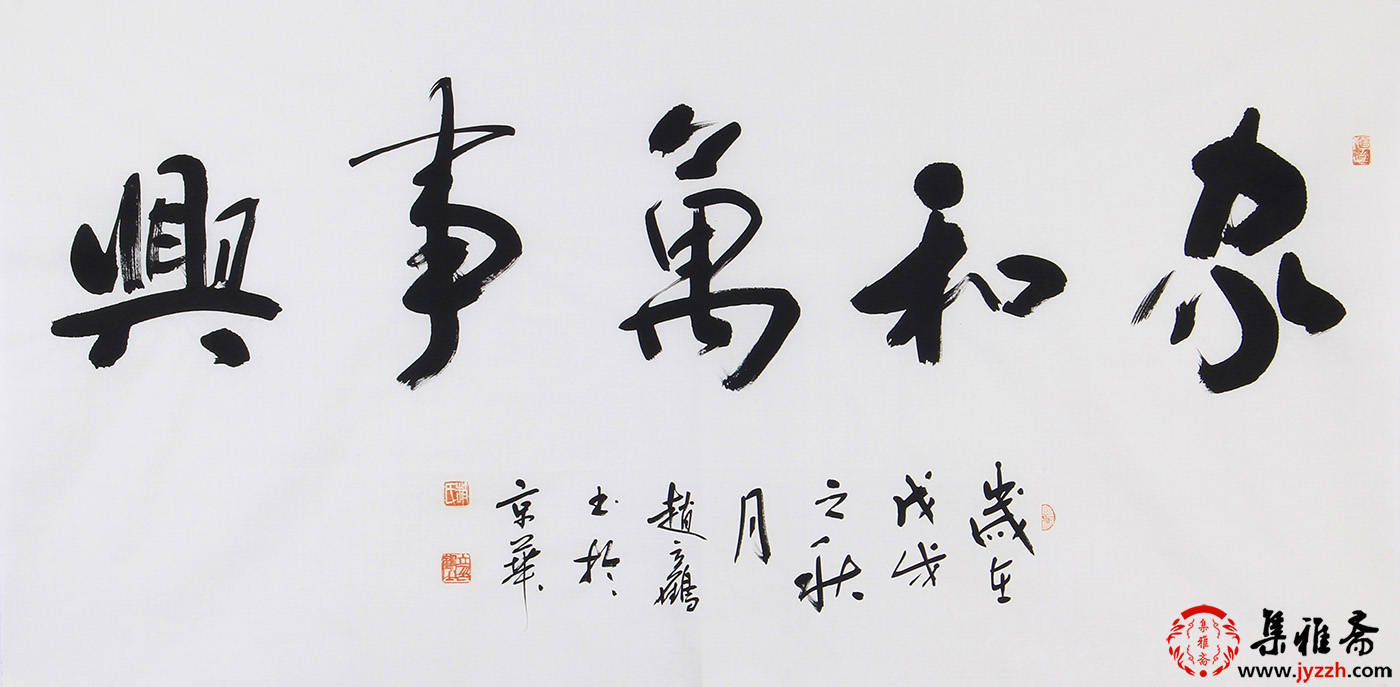 家和萬事興
歲在
戊戌
之秋
月
趙鶴
书於
京華
集雅斋
集雅斋
www.jyzzh.com